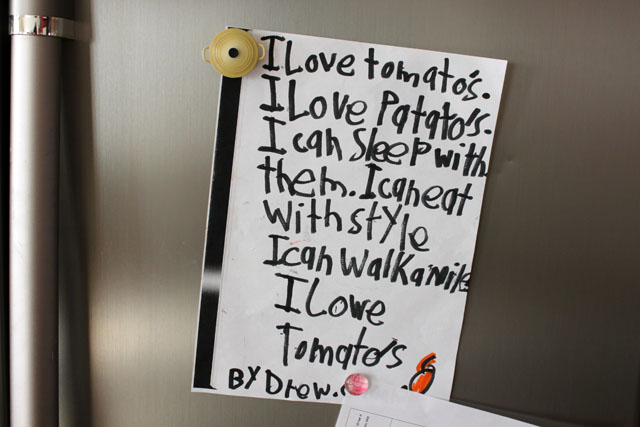 I Love tomato's.
I Love Patato's.
I can sleep with
them. I can eat
with style
I can walk a mile
I Love
Tomato's
BY Drew.